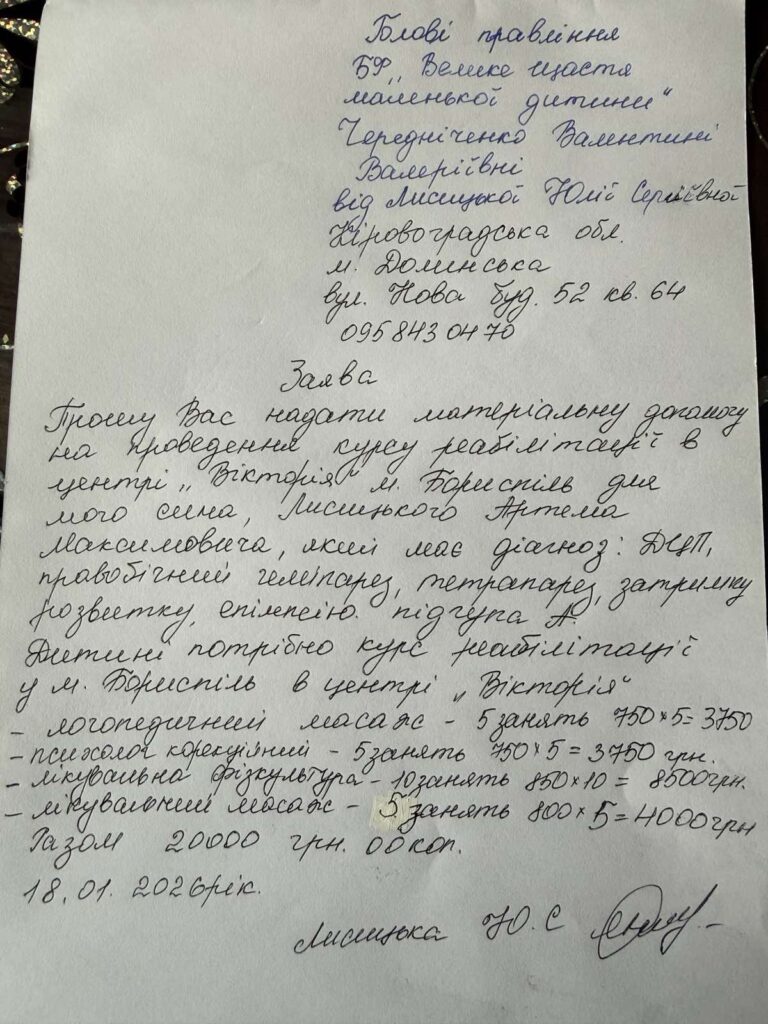 Голові правління
БФ „Велике щастя
маленької дитини"
Чередніченко Валентині
Валеріївні
від Лисицької Юлії Сергіївної
Кіровоградська обл.
м. Долинська
вул. Нова буд. 52 кв. 64
095 843 04 70
Заява
Прошу Вас надати матеріальну допомогу
на проведення курсу реабілітації в
центрі „Вікторія" м. Бориспіль для
мого сина, Лисицького Артема
Максимовича, який має діагноз: ДЦП,
правобічний геміпарез, тетрапарез, затримку
розвитку, епілепсію. підгупа А.
Дитині потрібно курс реабілітації
у м. Бориспіль в центрі „Вікторія"
- логопедичний масаж - 5 занять 750×5=3750
- психолог корекційний - 5 занять 750×5=3750 грн.
- лікувальна фізкультура - 10 занять 850×10= 8500грн.
- лікувальний масаж - 5 занять 800×5=4000грн
Разом 20000 грн. 00коп.
18.01.2026рік.
Лисицька Ю.С